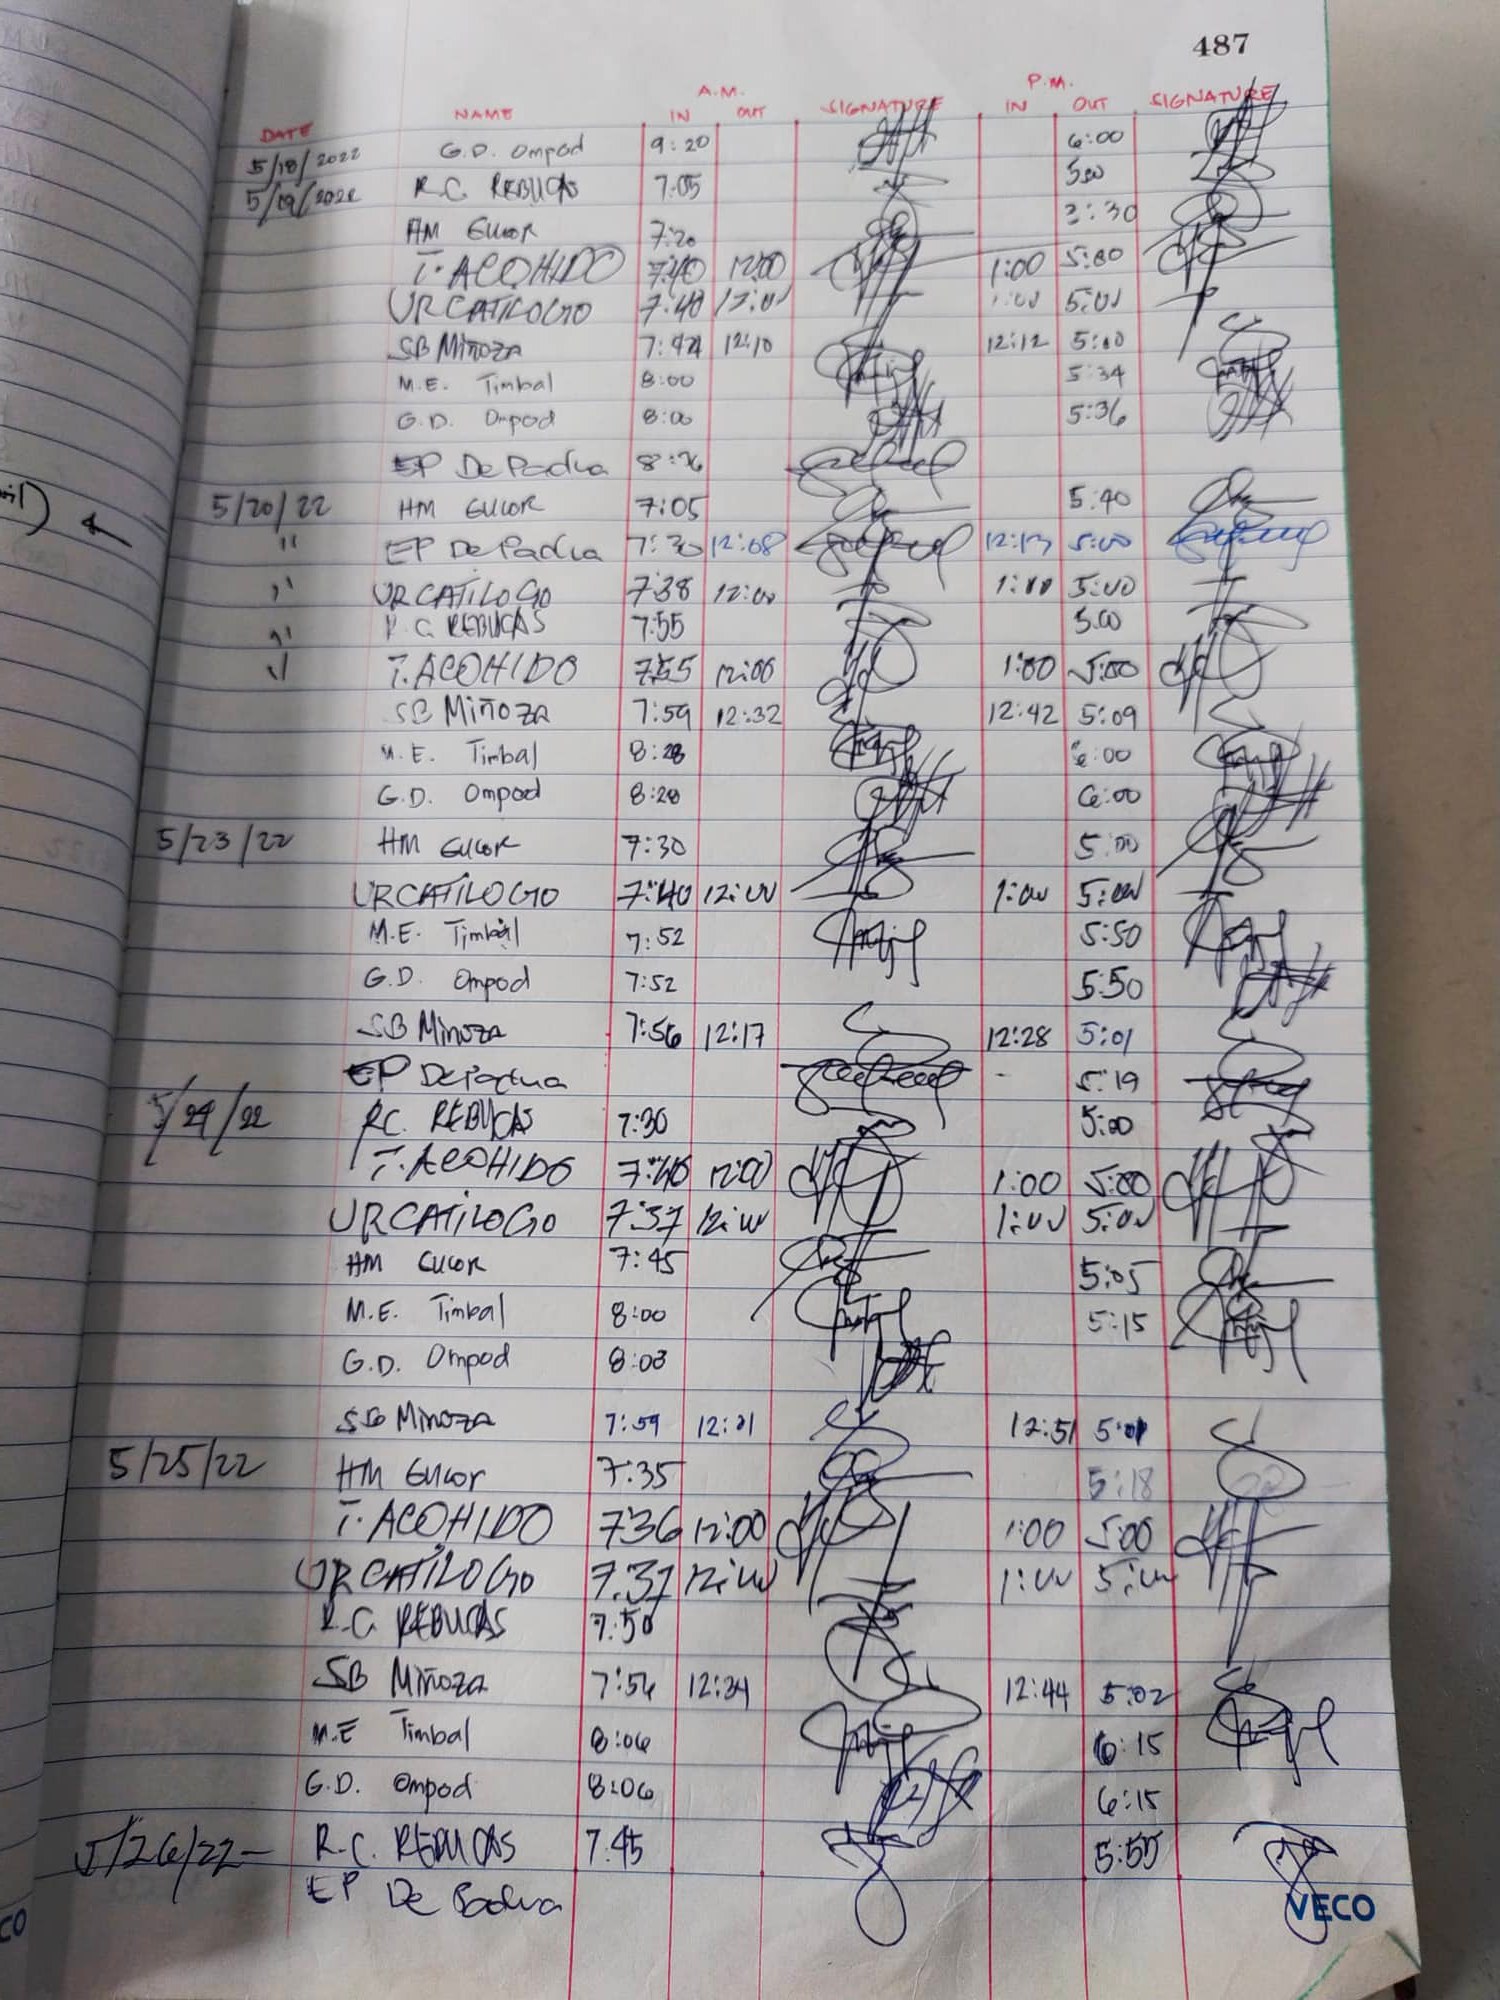 487
A.M. P.M.
DATE NAME IN OUT SIGNATURE IN OUT SIGNATURE
5/18/2022 G.D. Ompod 9:20 6:00
5/19/2022 R.C. REBUCAS 7:05 5:00
HM 7:20 3:30
T. ACOHIDO 7:40 12:00 1:00 5:00
URCATILOGO 7:40 12:00 1:00 5:00
SB Miñoza 7:44 12:10 12:12 5:10
M.E. Timbal 8:00 5:34
G.D. Ompod 8:00 5:36
EP De Padua
5/20/22 HM 7:05 5:40
" EP De Padua 7:30 12:08 12:13 5:00
" URCATILOGO 7:38 12:00 1:00 5:00
" R.C. REBUCAS 7:55 5:00
" T. ACOHIDO 7:55 12:00 1:00 5:00
SB Miñoza 7:59 12:32 12:42 5:09
M.E. Timbal 8:28 6:00
G.D. Ompod 8:28 6:00
5/23/22 HM 7:30 5:00
URCATILOGO 7:40 12:00 1:00 5:00
M.E. Timbal 7:52 5:50
G.D. Ompod 7:52 5:50
SB Minoza 7:56 12:17 12:28 5:01
EP De Padua - 5:19
5/24/22 RC. REBUCAS 7:30 5:00
T. ACOHIDO 7:40 12:00 1:00 5:00
URCATILOGO 7:37 12:00 1:00 5:00
HM 7:45 5:05
M.E. Timbal 8:00 5:15
G.D. Ompod 8:03
SB Minoza 7:59 12:01 12:51 5:01
5/25/22 HM 7:35 5:18
T. ACOHIDO 7:36 12:00 1:00 5:00
URCATILOGO 7:37 12:00 1:00 5:00
R.C. REBUCAS 7:50
SB Miñoza 7:56 12:34 12:44 5:02
M.E Timbal 8:06 6:15
G.D. Ompod 8:06 6:15
5/26/22 R.C. REBUCAS 7:45 5:55
EP De Padua
VECO